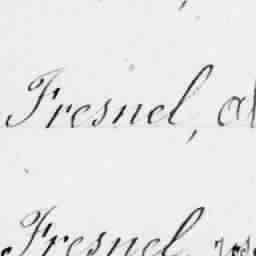 Fresnel,
Fresnel